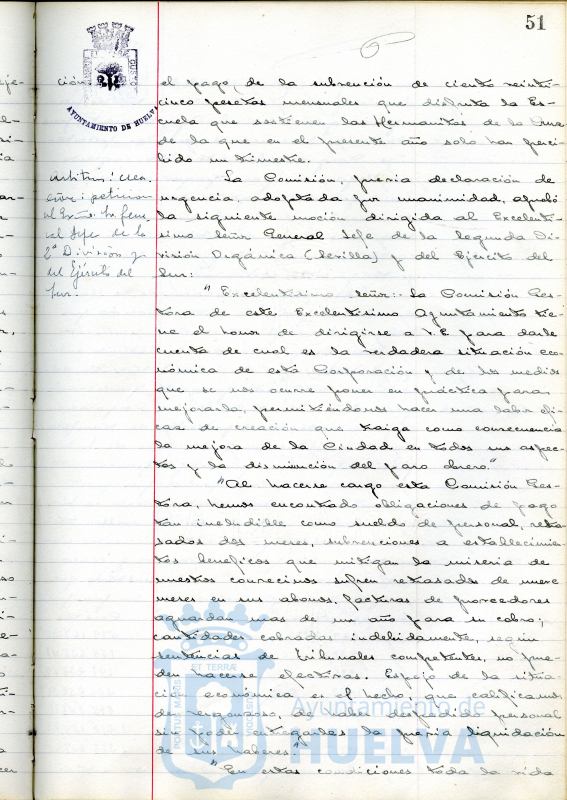 51
AYUNTAMIENTO DE HUELVA
ción
el pago, de la subvención de ciento veinti-
cinco pesetas mensuales que disfruta la Es-
cuela que sostienen las Hermanitas de la
de la que en el presente año solo han perci-
bido un trimestre.
petición
al Excmo. Sr. Gene-
ral Jefe de la
2ª División y
del Ejército del
Sur.
La Comisión, previa declaración de
urgencia, adoptada por unanimidad, aprobó
la siguiente moción dirigida al Excelentí-
simo Señor General Jefe de la Segunda Di-
visión Orgánica (Sevilla) y del Ejército del
Sur:
"Excelentísimo Señor:- La Comisión Ges-
tora de este Excelentísimo Ayuntamiento tie-
ne el honor de dirigirse a V.E. para darle
cuenta de cual es la verdadera situación eco-
nómica de esta Corporación y de los medios
que se nos ocurre poner en práctica para
mejorarla, permitiéndonos hacer una labor efi-
caz de creación que traiga como consecuencia
la mejora de la Ciudad en todos sus aspec-
tos y la disminución del paro obrero."
"Al hacerse cargo esta Comisión Ges-
tora, hemos encontrado obligaciones de pago
tan ineludible como sueldo de personal, retra-
sados dos meses, subvenciones a establecimien-
tos benéficos que mitigan la miseria de
nuestros convecinos sufren retrasados de nueve
meses en sus abonos, facturas de proveedores
aguardan mas de un año para su cobro;
cantidades cobradas indebidamente, según
sentencias de Tribunales competentes, no pue-
den hacerse efectivas. Espejo de la situa-
ción económica, es el hecho, que calificamos
de vergonzoso, de haber despedido personal
sin poder entregarles la previa liquidación
de sus haberes."
"En estas condiciones toda la vida
PORTUS MARIS
ET TERRÆ
CUSTODIA
Ayuntamiento de
HUELVA